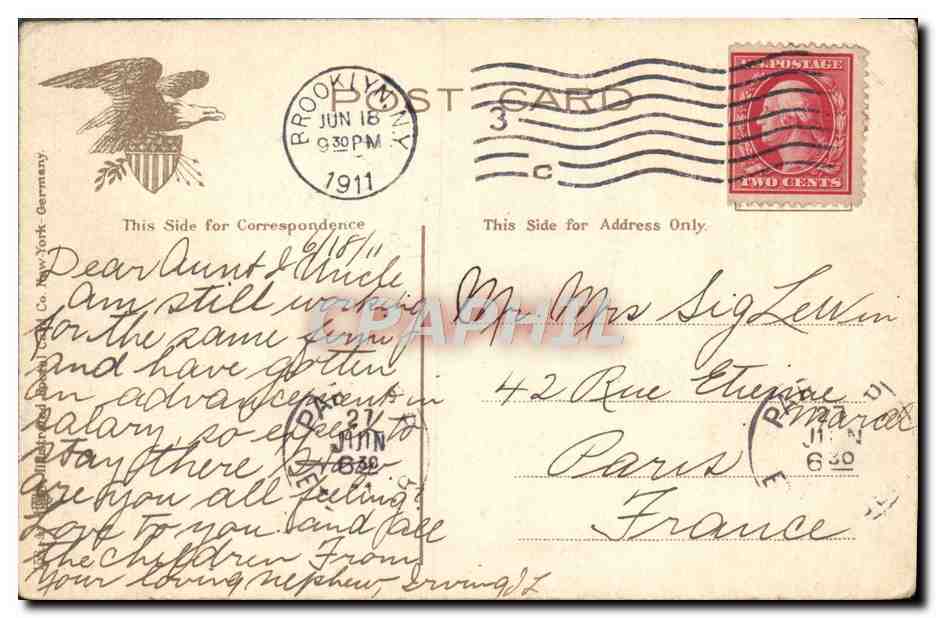 POST CARD
BROOKLYN, N.Y.
JUN 18
9 30 PM
1911
3
C
U.S. POSTAGE
TWO CENTS
This Side for Correspondence
This Side for Address Only.
6/18/11
Dear Aunt & Uncle
Am still working
for the same firm
and have gotten
an advancement in
salary, so expect to
stay there How
are you all feeling?
Love to you and all
the children From
your loving nephew, Irving
Mr Mrs Sig Lewin
42 Rue Etienne
Marcel
Paris
France
27
JUIN
6 30
27
JUIN
6 30
Illustrated Postal Card Co. New York - Germany.
CPAPHIL